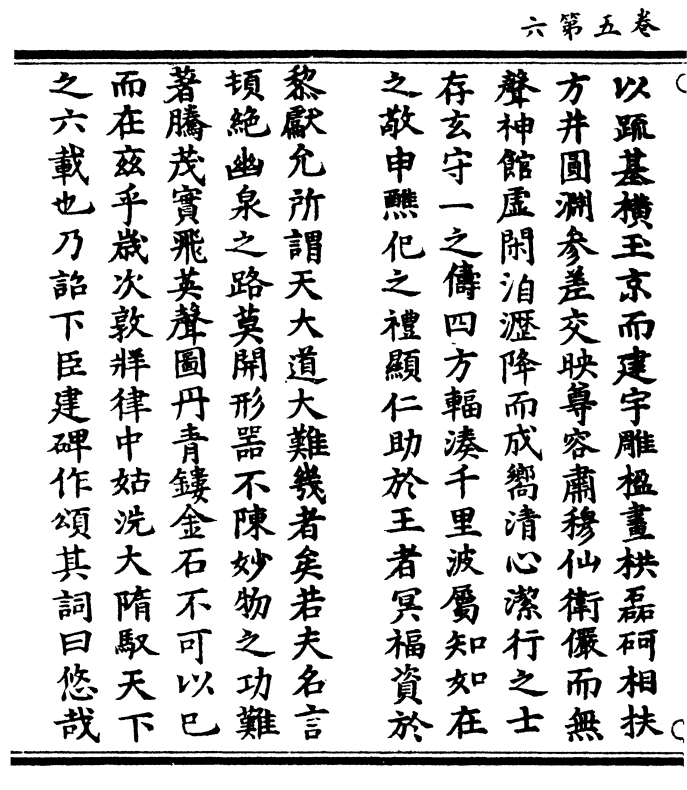 卷五第六
以疏基橫玉京而建宇雕楹畫栱磊砢相扶
方井圓淵參差交映尊容肅穆仙衛儼而無
聲神館虛閑洎瀝降而成響清心潔行之士
存玄守一之儔四方輻湊千里波屬知如在
之敬申醮祀之禮顯仁助於王者冥福資於
黎獻允所謂天大道大難幾者矣若夫名言
頓絕幽泉之路莫開形器不陳妙物之功難
著騰茂實飛英聲圖丹青鏤金石不可以已
而在茲乎歲次敦牂律中姑洗大隋馭天下
之六載也乃詔下臣建碑作頌其詞曰悠哉